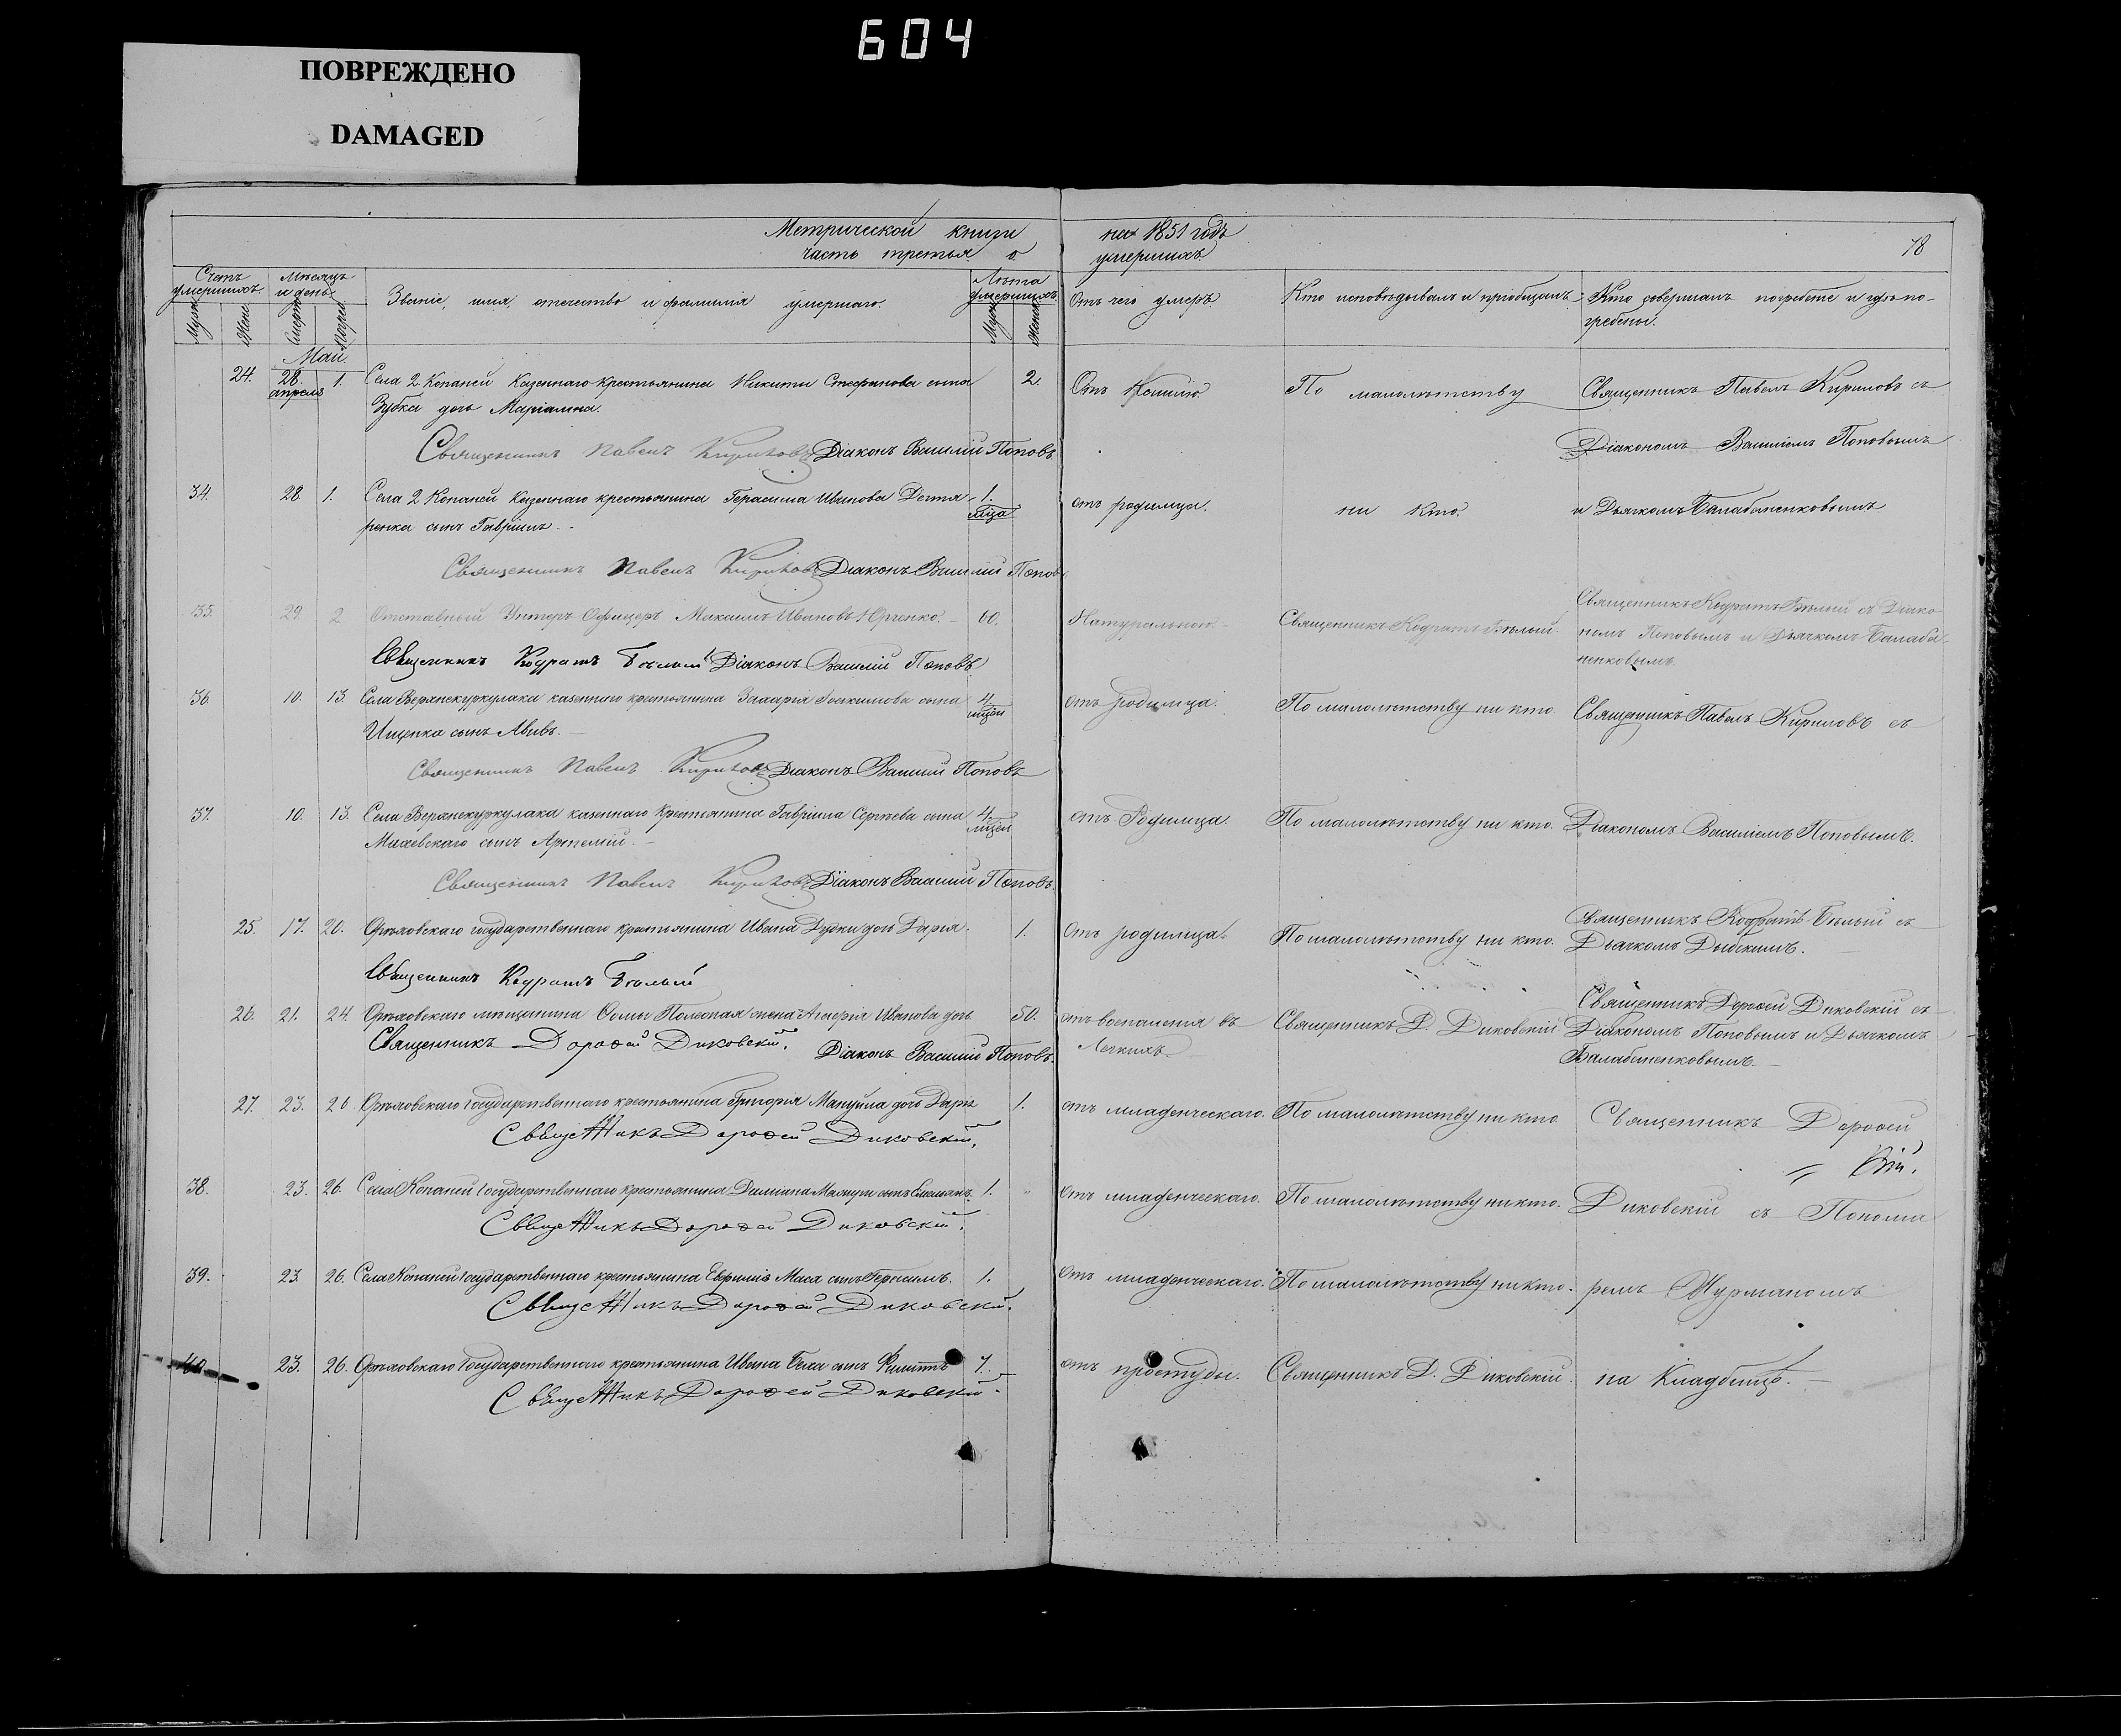 604
ПОВРЕЖДЕНО
DAMAGED
Метрической книги на 1851 годъ
часть третья о умершихъ
78
Счетъ умершихъ
Мѣсяцъ и день
Званіе, имя, отечество и фамилія умершаго.
Лѣта умершихъ
Отъ чего умеръ.
Кто исповѣдывалъ и пріобщалъ
Кто совершалъ погребеніе и гдѣ по-
гребены.
Муж. Жен. Смерти Погреб. Муж. Женс.
Май.
24. 28. апреля 1. Села 2 Копаней Казеннаго крестьянина Никиты Стефанова сына 2. Отъ Кашлю По малолѣтству Священникъ Павелъ Кириловъ съ
Зубка дочь Маріамна.
Священникъ Павелъ Кириловъ Діаконъ Василій Поповъ Діакономъ Василіемъ Поповымъ
34. 28 1. Села 2 Копаней Казеннаго крестьянина Герасима Иванова Дегтя- 1. мѣца отъ родимца. ни кто. и Дьячкомъ Балабаненковымъ
ренка сынъ Гавріилъ
Священникъ Павелъ Кириловъ Діаконъ Василій Поповъ
35. 29. 2 Отставный Унтеръ Офицеръ Максимъ Ивановъ Юрченко. 60. Натуральною Священникъ Кодратъ Бѣлый. Священникъ Кодратъ Бѣлый съ Діако-
номъ Поповымъ и Дьячкомъ Балаба-
ненковымъ.
Священникъ Кодратъ Бѣлый Діаконъ Василій Поповъ
36. 10. 13. Села Верхнекуркулака казеннаго крестьянина Захарія Іоакимова сына 4. мѣцей отъ родимца. По малолѣтству ни кто. Священникъ Павелъ Кириловъ съ
Ищенка сынъ Авивъ.
Священникъ Павелъ Кириловъ Діаконъ Василій Поповъ
37. 10. 13. Села Верхнекуркулака казеннаго крестьянина Гавріила Сергѣева сына 4. мѣцей отъ Родимца. По малолѣтству ни кто. Діакономъ Василіемъ Поповымъ.
сынъ Артемій.
Священникъ Павелъ Кириловъ Діаконъ Василій Поповъ.
25. 17. 20. Орѣховскаго государственнаго крестьянина Ивана Дудки дочь Дарія. 1. отъ родимца. По малолѣтству ни кто. Священникъ Кодратъ Бѣлый съ
Дьячкомъ
Священникъ Кодратъ Бѣлый
26. 21. 24. Орѣховскаго мѣщанина Ѳомы жена Иванова дочь 50. отъ воспаленія въ Священникъ Д. Диковскій Священникъ Дороѳей Диковскій съ
Легкихъ. Діакономъ Поповымъ и Дьячкомъ
Балабаненковымъ.
Священникъ Дороѳей Диковскій. Діаконъ Василій Поповъ.
27. 23. 26 Орѣховскаго Государственнаго крестьянина Григорія Мануйла дочь 1. отъ младенческаго. По малолѣтству ни кто Священникъ Дороѳей
Священникъ Дороѳей Диковскій.
38. 23. 26. Села Копаней Государственнаго крестьянина Даміана сынъ 1. отъ младенческаго. По малолѣтству ни кто. Диковскій съ Понома-
Священникъ Дороѳей Диковскій.
39. 23 26. Села Копаней Государственнаго крестьянина Евфимія сынъ Герасимъ. 1. отъ младенческаго. По малолѣтству ни кто. ремъ
Священникъ Дороѳей Диковскій.
40 23. 26. Орѣховскаго Государственнаго крестьянина Ивана сынъ Филиппъ 7. отъ простуды. Священникъ Д. Диковскій. на Кладбищѣ.
Священникъ Дороѳей Диковскій.